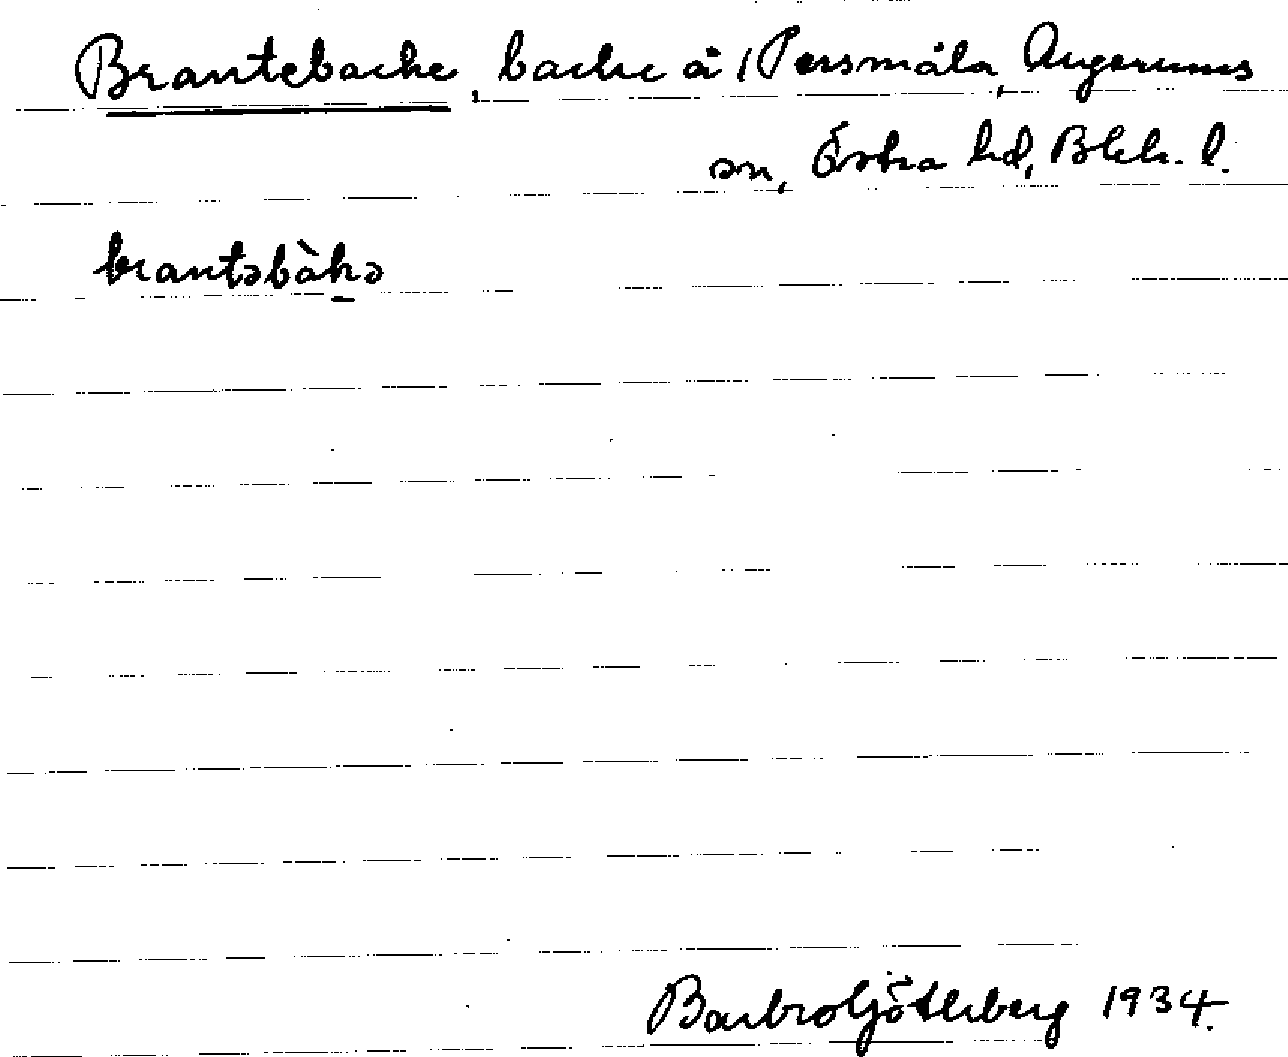 Brantebacke, backe å Persmåla, Augerums
sn, Östra hd, Blek. l.
brantəbàkə
Barbro Götherberg 1934.